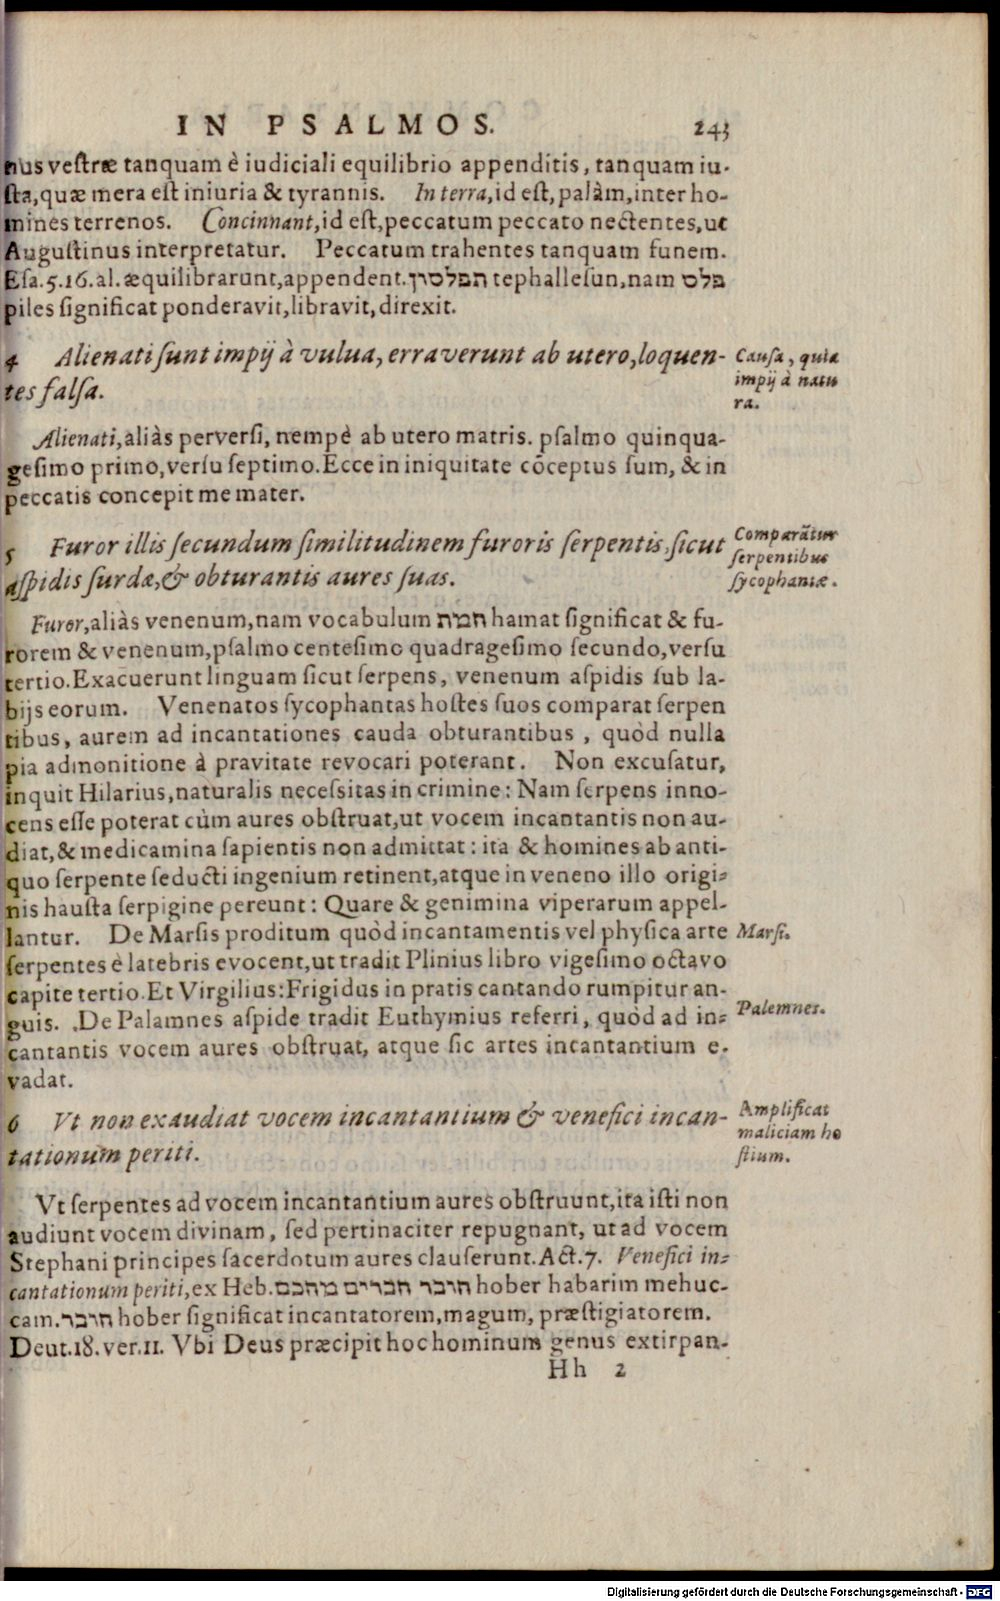 IN PSALMOS. 243
nus vestræ tanquam è iudiciali equilibrio appenditis, tanquam iu-
sta, quæ mera est iniuria & tyrannis. In terra, id est, palàm, inter ho-
mines terrenos. Concinnant, id est, peccatum peccato nectentes, ut
Augustinus interpretatur. Peccatum trahentes tanquam funem.
Esa. 5. 16. al. æquilibrarunt, appendent. תפלסון tephallesun, nam פלס
piles significat ponderavit, libravit, direxit.
4 Alienati sunt impij à vulua, erraverunt ab utero, loquen-
tes falsa.
Causa, quia
impij à natu
ra.
Alienati, aliàs perversi, nempè ab utero matris. psalmo quinqua-
gesimo primo, versu septimo. Ecce in iniquitate cõceptus sum, & in
peccatis concepit me mater.
5 Furor illis secundum similitudinem furoris serpentis, sicut
aspidis surdæ, & obturantis aures suas.
Comparãtur
serpentibus
sycophantæ.
Furor, aliàs venenum, nam vocabulum חמת hamat significat & fu-
rorem & venenum, psalmo centesimo quadragesimo secundo, versu
tertio. Exacuerunt linguam sicut serpens, venenum aspidis sub la-
bijs eorum. Venenatos sycophantas hostes suos comparat serpen
tibus, aurem ad incantationes cauda obturantibus, quòd nulla
pia admonitione à pravitate revocari poterant. Non excusatur,
inquit Hilarius, naturalis necessitas in crimine: Nam serpens inno-
cens esse poterat cùm aures obstruat, ut vocem incantantis non au-
diat, & medicamina sapientis non admittat: ita & homines ab anti-
quo serpente seducti ingenium retinent, atque in veneno illo origi-
nis hausta serpigine pereunt: Quare & genimina viperarum appel-
lantur. De Marsis proditum quòd incantamentis vel physica arte
serpentes è latebris evocent, ut tradit Plinius libro vigesimo octavo
capite tertio. Et Virgilius: Frigidus in pratis cantando rumpitur an-
guis. De Palamnes aspide tradit Euthymius referri, quòd ad in-
cantantis vocem aures obstruat, atque sic artes incantantium e-
vadat.
Marsi.
Palemnes.
6 Vt non exaudiat vocem incantantium & venefici incan-
tationum periti.
Amplificat
maliciam ho
stium.
Vt serpentes ad vocem incantantium aures obstruunt, ita isti non
audiunt vocem divinam, sed pertinaciter repugnant, ut ad vocem
Stephani principes sacerdotum aures clauserunt. Act. 7. Venefici in-
cantationum periti, ex Heb. חובר חברים מחכם hober habarim mehuc-
cam. חובר hober significat incantatorem, magum, præstigiatorem.
Deut. 18. ver. 11. Vbi Deus præcipit hoc hominum genus extirpan-
Hh 2
Digitalisierung gefördert durch die Deutsche Forschungsgemeinschaft - DFG